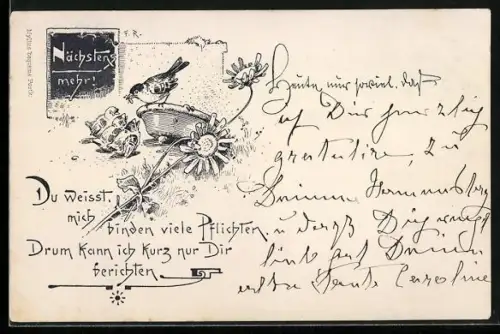 Nächstens
mehr!
F.R.
Du weisst,
mich
binden viele Pflichten,
Drum kann ich kurz nur Dir
berichten
Heute nur soviel, daß
ich Dir herzlich
gratulire, zu
Deinem
u. daß Dich
liebt Deine
alte Tante Caroline